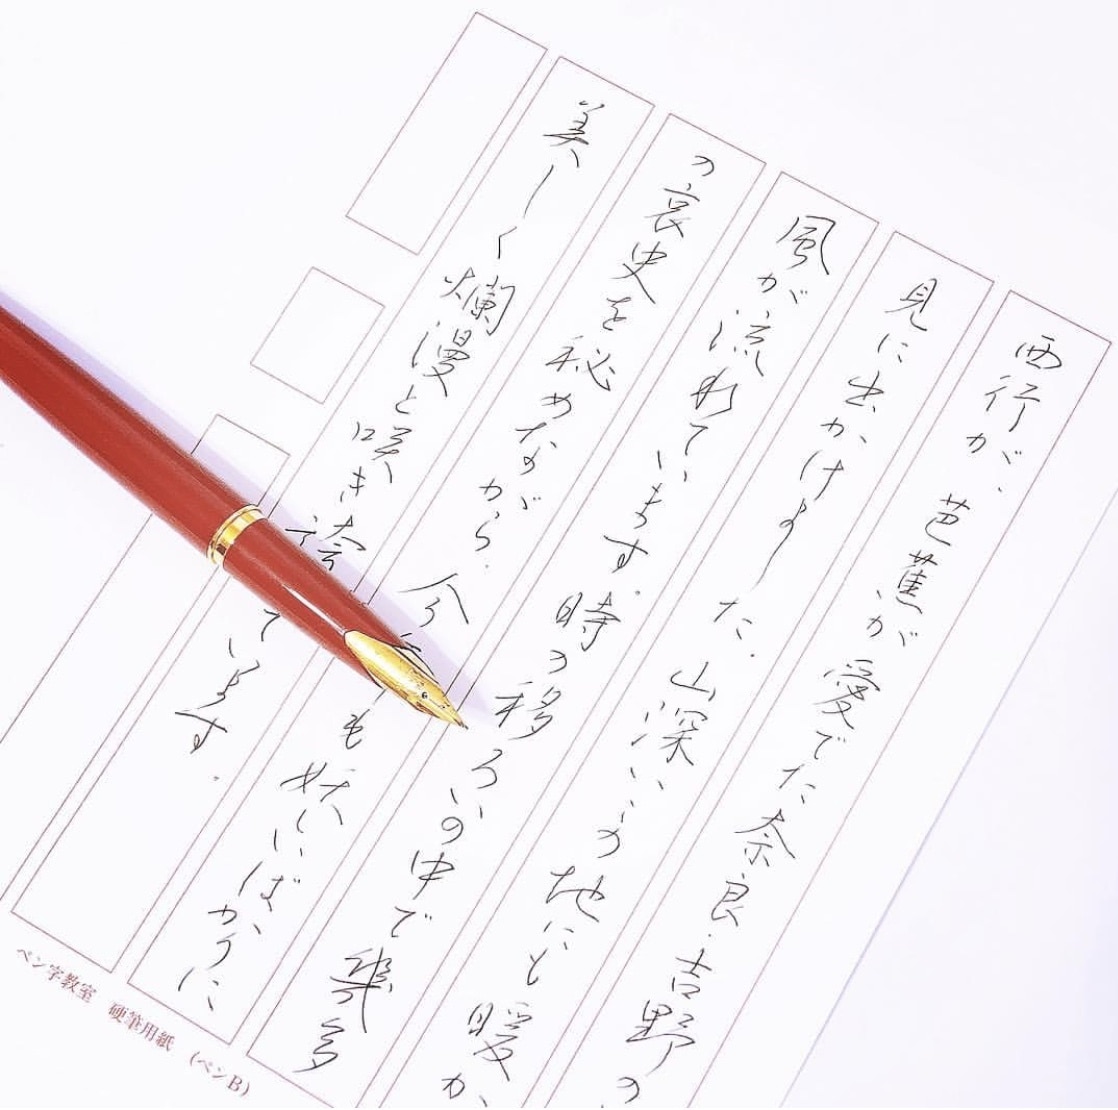 西行が、芭蕉が愛でた奈良・吉野の
見に出かけました。山深いこの地にも暖か
風が流れています。時の移ろいの中で幾多
の哀史を秘めながら、今も妖しいばかりに
美しく爛漫と咲き誇ています。
ペン字教室 硬筆用紙 (ペンB)